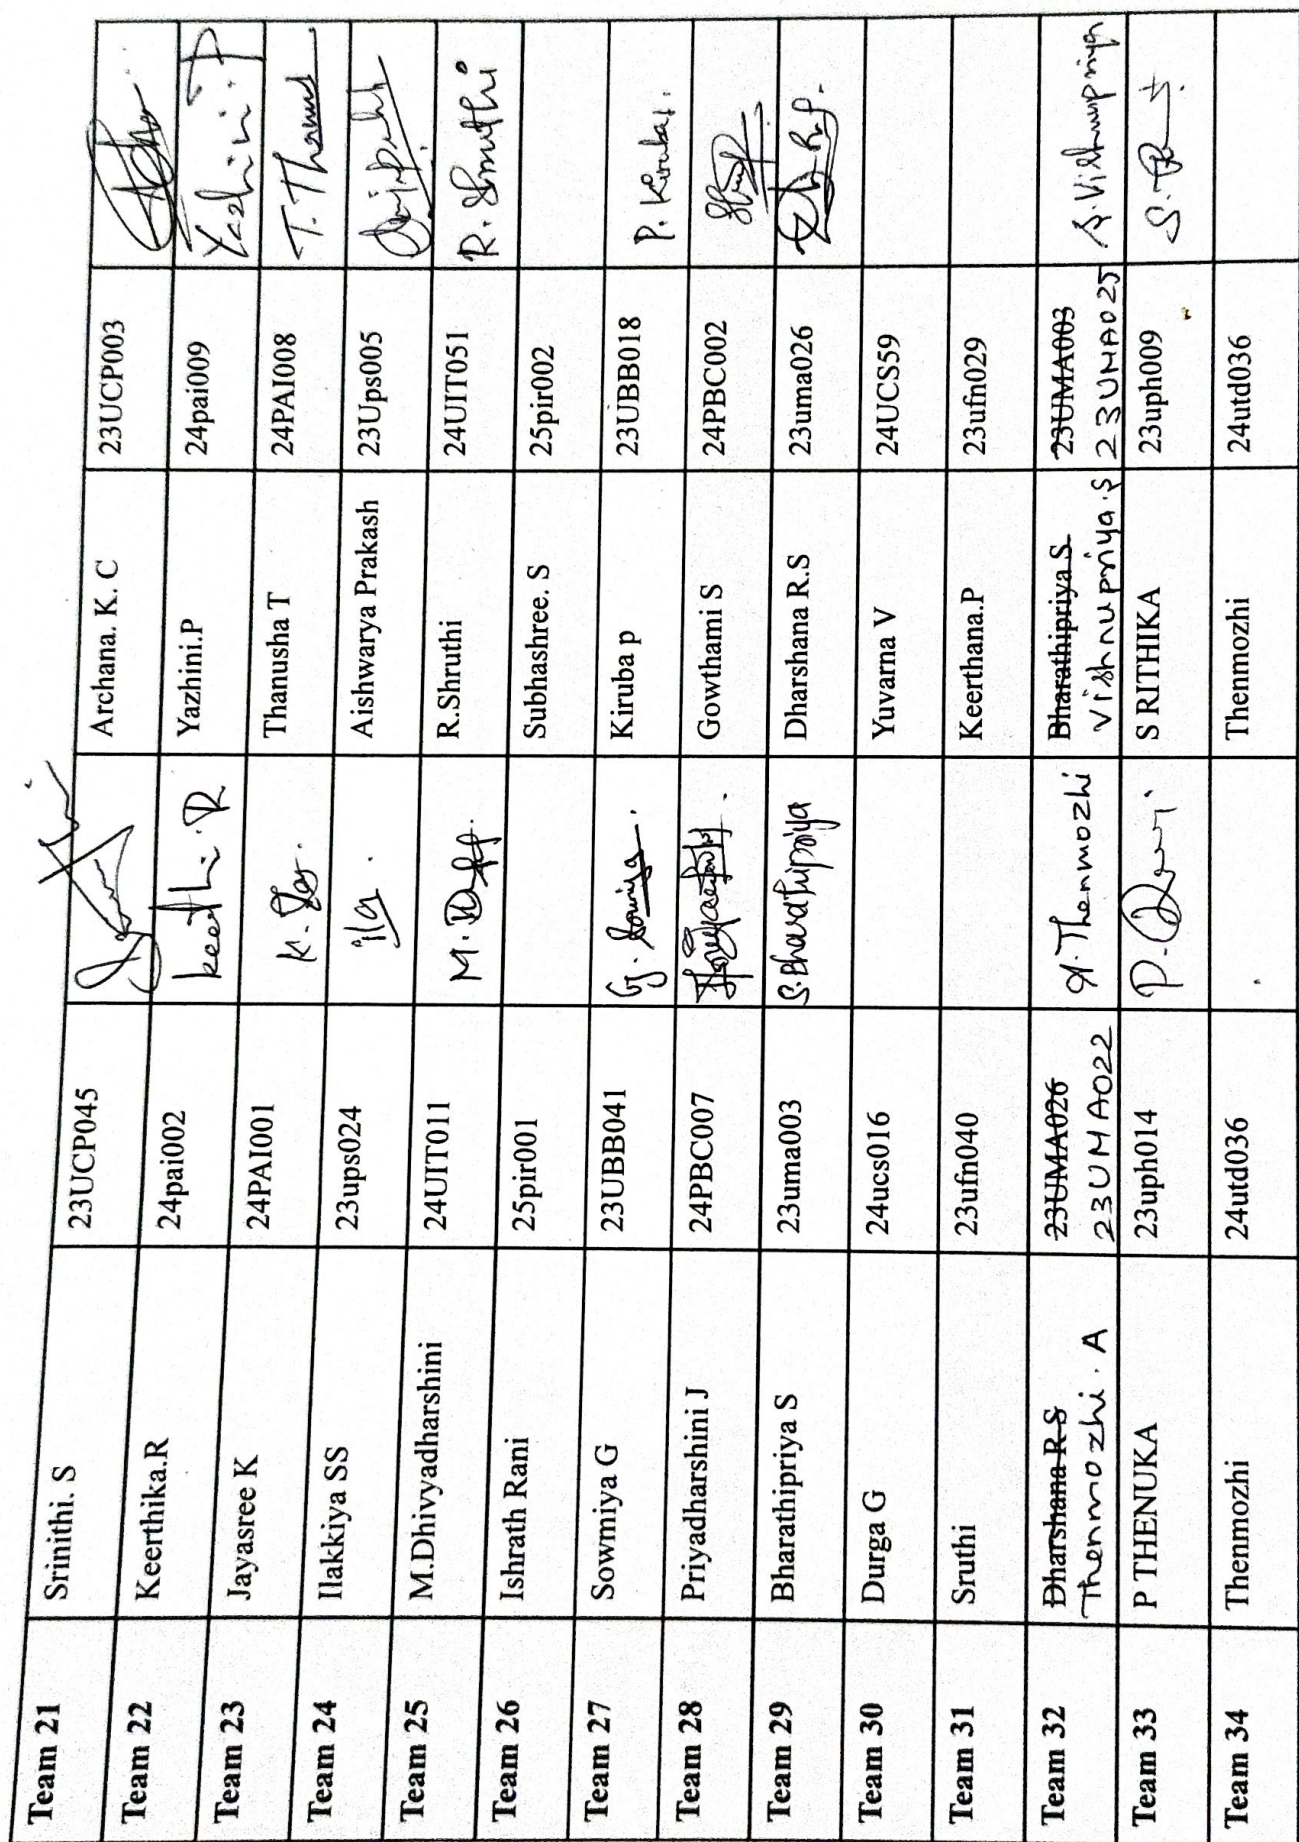 Team 21 Srinithi. S 23UCP045 Archana. K. C 23UCP003
Team 22 Keerthika.R 24pai002 Keethi.R Yazhini.P 24pai009 Yazhini.P
Team 23 Jayasree K 24PAI001 Thanusha T 24PAI008
Team 24 Ilakkiya SS 23ups024 Ila. Aishwarya Prakash 23Ups005
Team 25 M.Dhivyadharshini 24UIT011 R.Shruthi 24UIT051 R. Shruthi
Team 26 Ishrath Rani 25pir001 Subhashree. S 25pir002
Team 27 Sowmiya G 23UBB041 G. Sowmiya. Kiruba p 23UBB018 P. Kiruba.
Team 28 Priyadharshini J 24PBC007 Gowthami S 24PBC002
Team 29 Bharathipriya S 23uma003 S.Bharathipriya Dharshana R.S 23uma026
Team 30 Durga G 24ucs016 Yuvarna V 24UCS59
Team 31 Sruthi 23ufn040 Keerthana.P 23ufn029
Team 32 Dharshana R.S 23UMA026 Bharathipriya S. 23UMA003
Thenmozhi. A 23UMA022 A.Thenmozhi Vishnupriya.S 23UMA025 S.Vishnupriya
Team 33 P THENUKA 23uph014 S RITHIKA 23uph009
Team 34 Thenmozhi 24utd036 Thenmozhi 24utd036